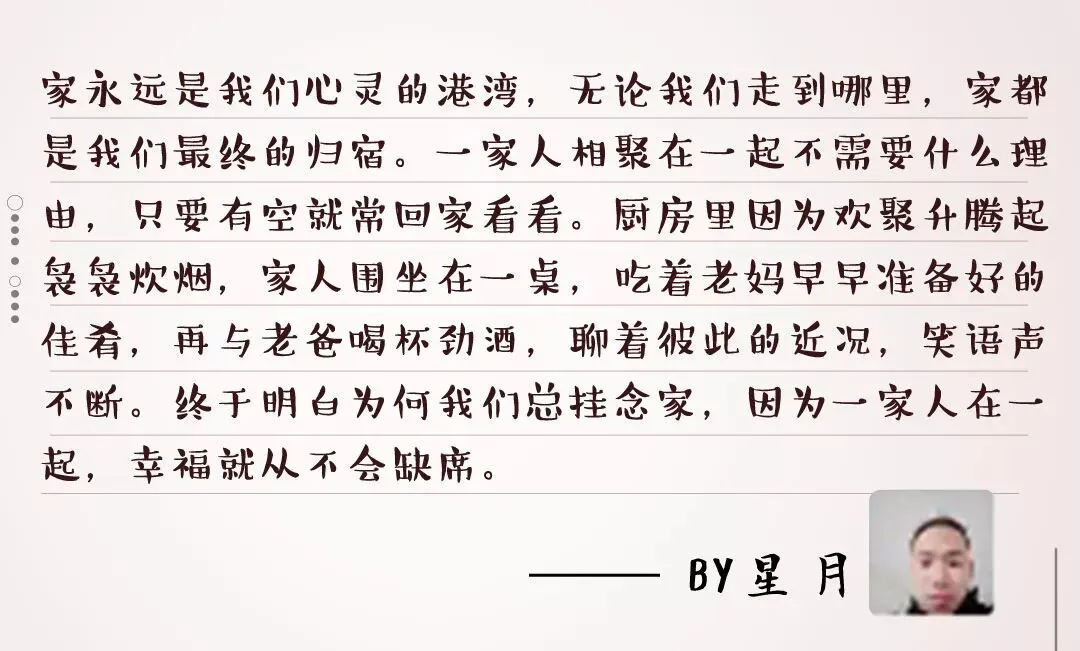 家永远是我们心灵的港湾，无论我们走到哪里，家都
是我们最终的归宿。一家人相聚在一起不需要什么理
由，只要有空就常回家看看。厨房里因为欢聚升腾起
袅袅炊烟，家人围坐在一桌，吃着老妈早早准备好的
佳肴，再与老爸喝杯劲酒，聊着彼此的近况，笑语声
不断。终于明白为何我们总挂念家，因为一家人在一
起，幸福就从不会缺席。
—— BY星 月